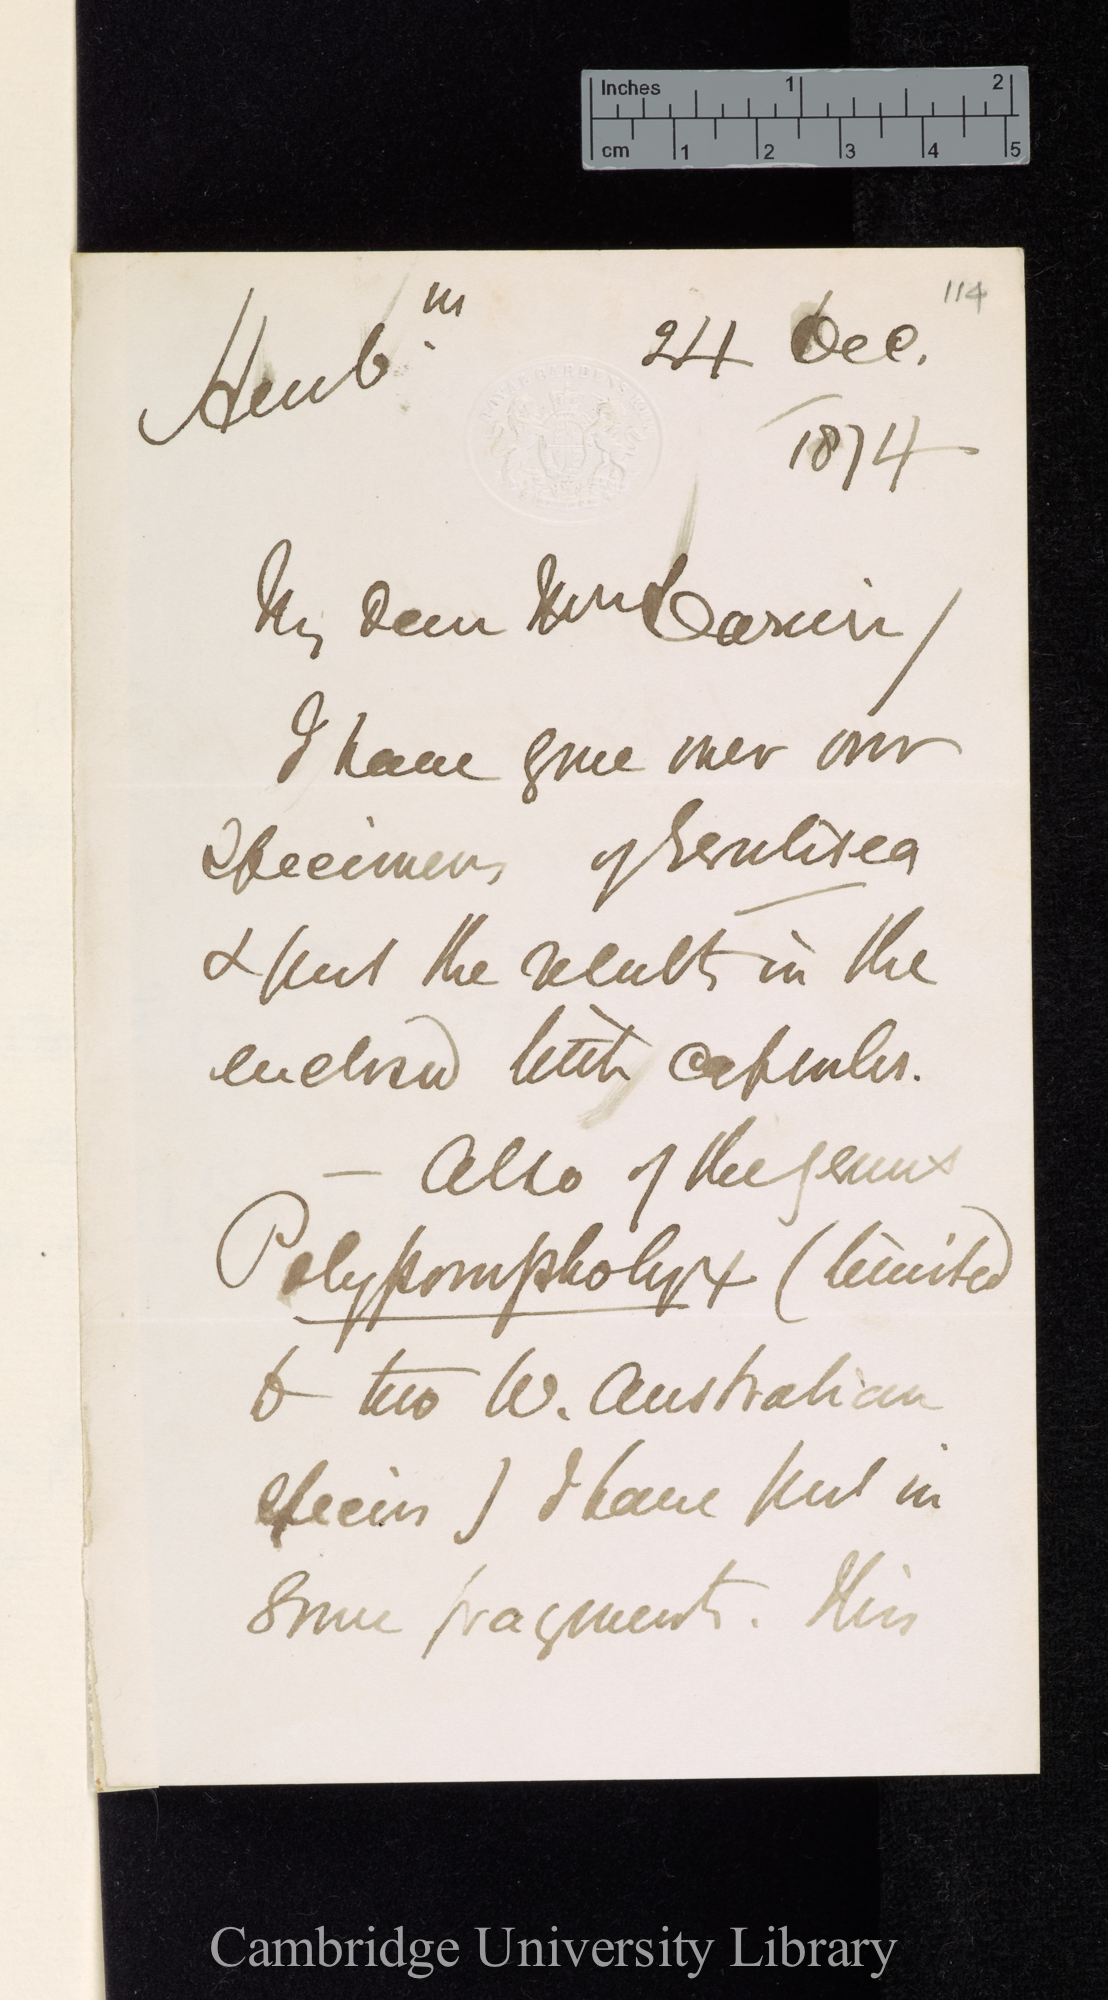 Inches 1 2
cm 1 2 3 4 5
114
Herb.m
24 Dec.
1874
My dear Mr Darwin/
I have gone over our
specimens of Genlisea
& put the results in the
enclosed little capsules.
— Also of the genus
Polypompholyx (limited
to two W. Australian
species) I have put in
some fragments. This
Cambridge University Library